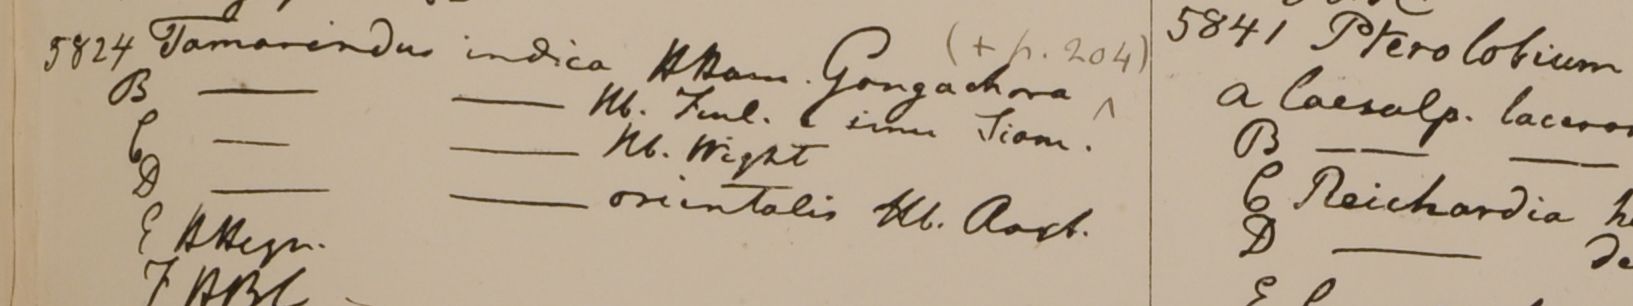 5824 Tamarindus indica HHam. Gongachora (+ p. 204)
B — — Hb. Finl. e sinu Siam.
C — — Hb. Wight
D — — orientalis Hb. Roxb.
E HHeyn.
F HBC
5841 Pterolobium
a Caesalp.
B — —
C Reichardia
D —
E